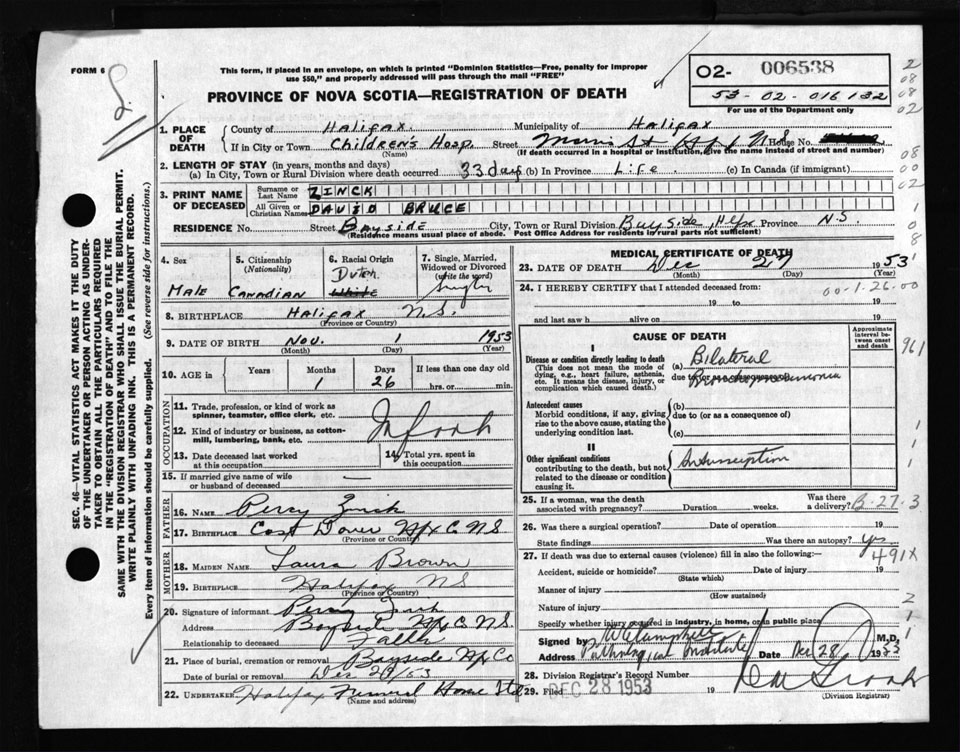 FORM 6
This form, if placed in an envelope, on which is printed "Dominion Statistics—Free, penalty for improper
use $50," and properly addressed will pass through the mail "FREE"
PROVINCE OF NOVA SCOTIA—REGISTRATION OF DEATH
02- 006538
53-02-016132
For use the Department only
1. PLACE OF DEATH
County of Halifax Municipality of Halifax
If in City or Town Children's Hosp. Street House No.
(Name) (If death occurred in a hospital or institution, give the name instead of street and number)
2. LENGTH OF STAY (in years, months and days)
(a) In City, Town or Rural Division where death occurred 33 days (b) In Province Life. (c) In Canada (if immigrant)
3. PRINT NAME OF DECEASED
Surname or Last Name ZINCK
All Given or Christian Names DAVID BRUCE
RESIDENCE No. Street Bayside City, Town or Rural Division Bayside, Hlfx Province N.S.
(Residence means usual place of abode. Post Office Address for residents in rural parts not sufficient)
4. Sex Male
5. Citizenship (Nationality) Canadian
6. Racial Origin Dutch White
7. Single, Married, Widowed or Divorced (write the word) Single
8. BIRTHPLACE Halifax N.S.
(Province or Country)
9. DATE OF BIRTH Nov. 1 1953
(Month) (Day) (Year)
10. AGE in Years Months Days If less than one day
1 26 hrs. or min.
OCCUPATION
11. Trade, profession, or kind of work as spinner, teamster, office clerk, etc.
12. Kind of industry or business, as cotton-mill, lumbering, bank, etc.
13. Date deceased last worked at this occupation
14. Total yrs. spent in this occupation
15. If married give name of wife or husband of deceased —
FATHER
16. NAME Percy Zinck
17. BIRTHPLACE East Dover Hfx C NS
(Province or Country)
MOTHER
18. MAIDEN NAME Laura Brown
19. BIRTHPLACE Halifax NS
(Province or Country)
20. Signature of informant Percy Zinck
Address Bayside Hfx C. N.S.
Relationship to deceased Father
21. Place of burial, cremation or removal Bayside Hfx Co
Date of burial or removal Dec 29/53
22. UNDERTAKER Halifax Funeral Home Ltd
(Name and address)
MEDICAL CERTIFICATE OF DEATH
23. DATE OF DEATH Dec 27 1953
(Month) (Day) (Year)
24. I HEREBY CERTIFY that I attended deceased from: 00-1-26-00
19 to 19
and last saw h alive on 19
CAUSE OF DEATH
Approximate interval between onset and death
I
Disease or condition directly leading to death
(This does not mean the mode of dying, e.g., heart failure, asthenia, etc. It means the disease, injury, or complication which caused death.)
(a) Bilateral
due to (or as a consequence of) Bronchopneumonia
Antecedent causes
Morbid conditions, if any, giving rise to the above cause, stating the underlying condition last.
(b)
due to (or as a consequence of)
(c)
II
Other significant conditions
contributing to the death, but not related to the disease or condition causing it.
Intussusception
25. If a woman, was the death associated with pregnancy? Duration weeks. Was there a delivery? B-27-3
26. Was there a surgical operation? Date of operation 19
State findings Was there an autopsy? yes
491X
27. If death was due to external causes (violence) fill in also the following:—
Accident, suicide or homicide? Date of injury 19
(State which)
Manner of injury
(How sustained)
Nature of injury
Specify whether injury occurred in industry, in home, or in public place
Signed by M.D.
Address Pathological Institute Date Dec 28 1953
28. Division Registrar's Record Number
29. Filed DEC 28 1953 19
(Division Registrar)
SEC. 46—VITAL STATISTICS ACT MAKES IT THE DUTY
OF THE UNDERTAKER OR PERSON ACTING AS UNDERTAKER
TO OBTAIN ALL THE PARTICULARS REQUIRED
IN THE "REGISTRATION OF DEATH" AND TO FILE THE
SAME WITH THE DIVISION REGISTRAR WHO SHALL ISSUE THE BURIAL PERMIT.
WRITE PLAINLY WITH UNFADING INK. THIS IS A PERMANENT RECORD.
Every item of information should be carefully supplied. (See reverse side for instructions.)
2
08
08
02
08
00
02
1
0
8
961
1
1
2
1